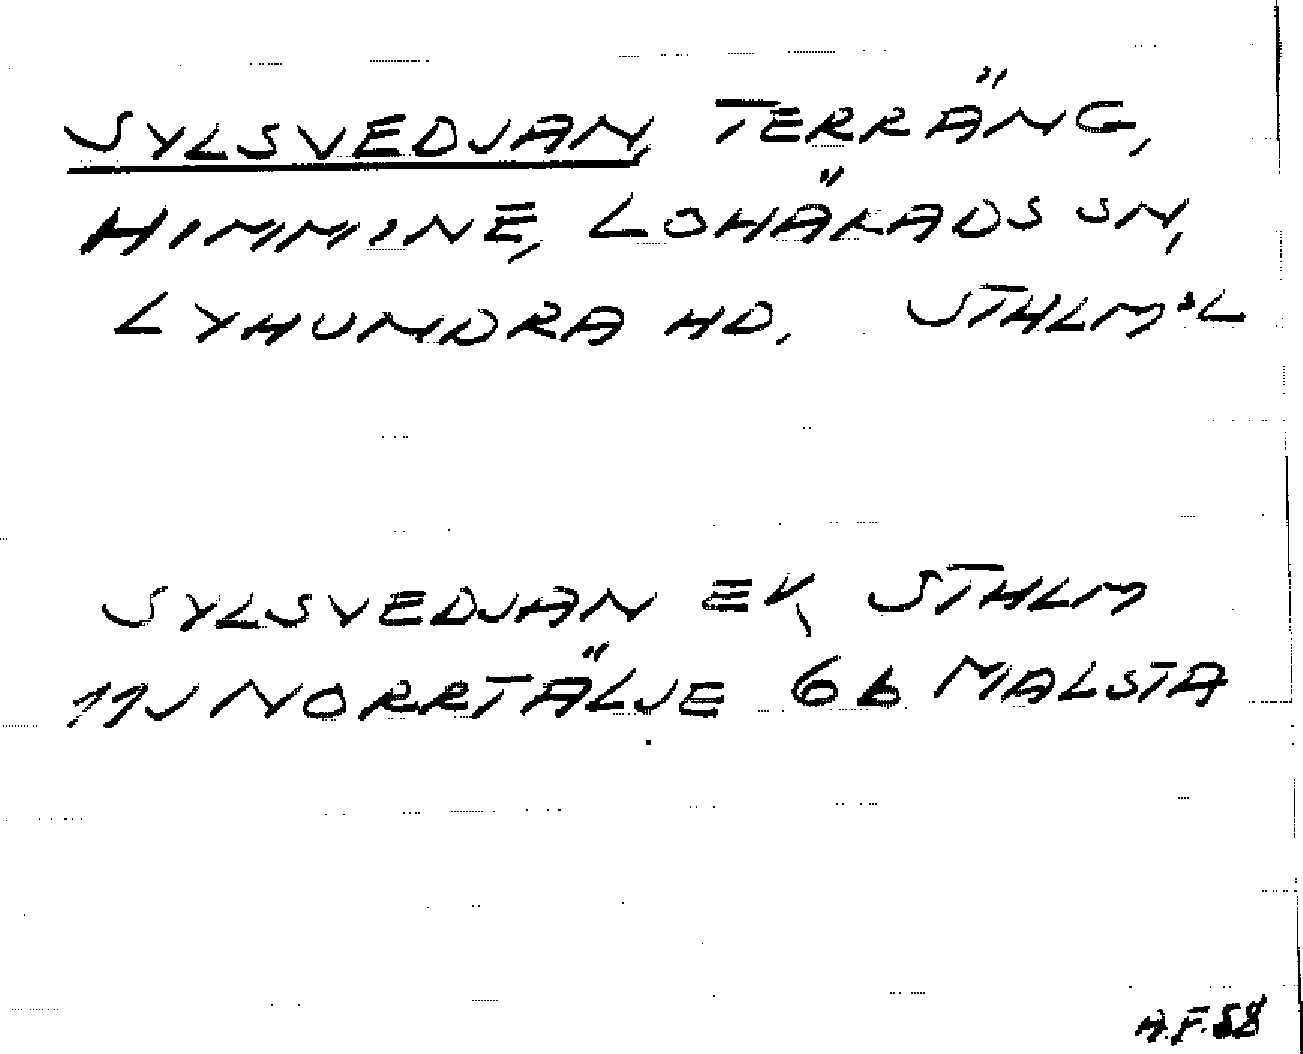 SYLSVEDJAN, TERRÄNG,
HIMMINE, LOHÄRADS SN,
LYHUNDRA HD, STHLM:L
SYLSVEDJAN EK, STHLM
11J NORRTÄLJE 6b MALSTA
A.F.58